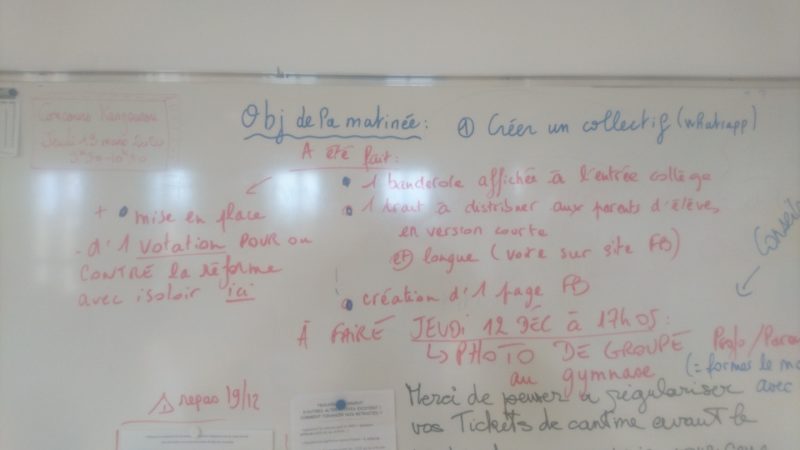 Concours Kangourou
Jeudi 19 mars 2020
Obj de la matinée : ① Créer un collectif (whatsapp)
A été fait :
• 1 banderole affichée à l'entrée collège
• 1 tract à distribuer aux parents d'élèves,
en version courte
et longue (voire sur site FB)
+ • mise en place
- d'1 votation POUR ou
CONTRE la réforme
avec isoloir ici
• création d'1 page FB
À FAIRE JEUDI 12 DÉC à 17h05 :
↳ PHOTO DE GROUPE
au gymnase
(= formes le
Conseils
⚠ repas 19/12
Merci de penser à régulariser avec
vos Tickets de cantine avant le